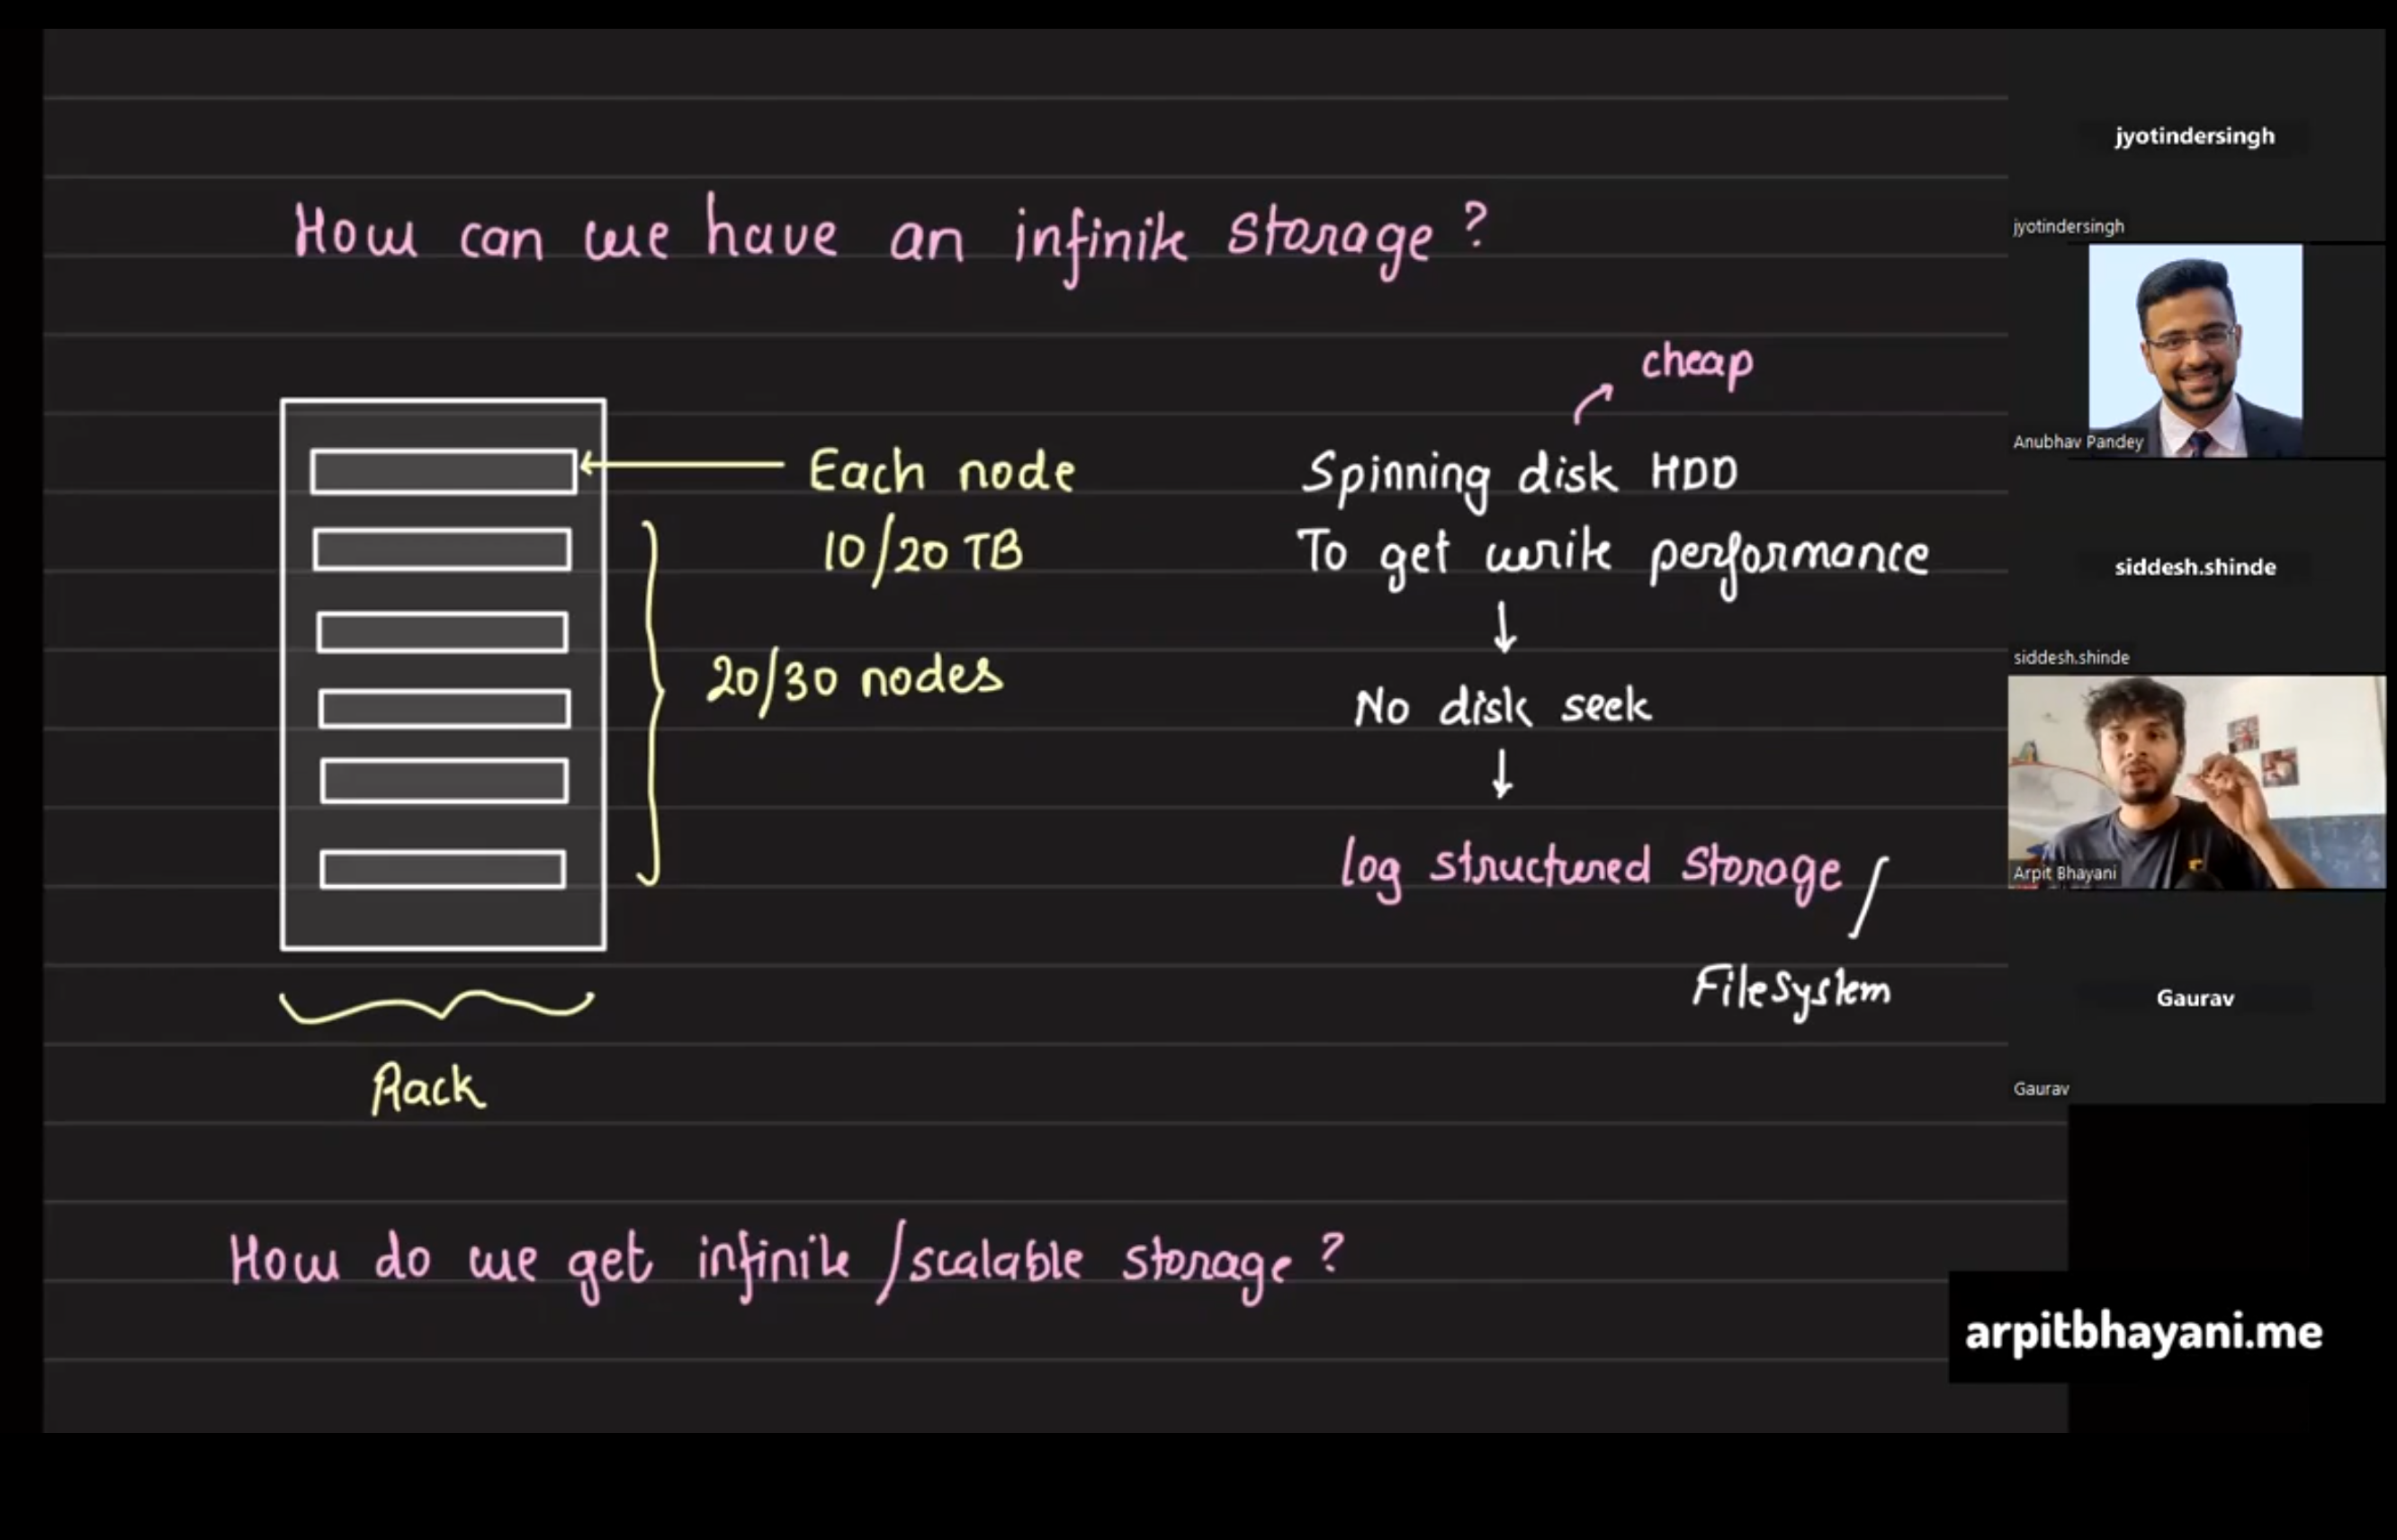 How can we have an infinite storage?
cheap
Each node
10/20 TB
20/30 nodes
Rack
Spinning disk HDD
To get write performance
No disk seek
log structured storage/
FileSystem
How do we get infinite/scalable storage?
jyotindersingh
jyotindersingh
Anubhav Pandey
siddesh.shinde
siddesh.shinde
Arpit Bhayani
Gaurav
Gaurav
arpitbhayani.me